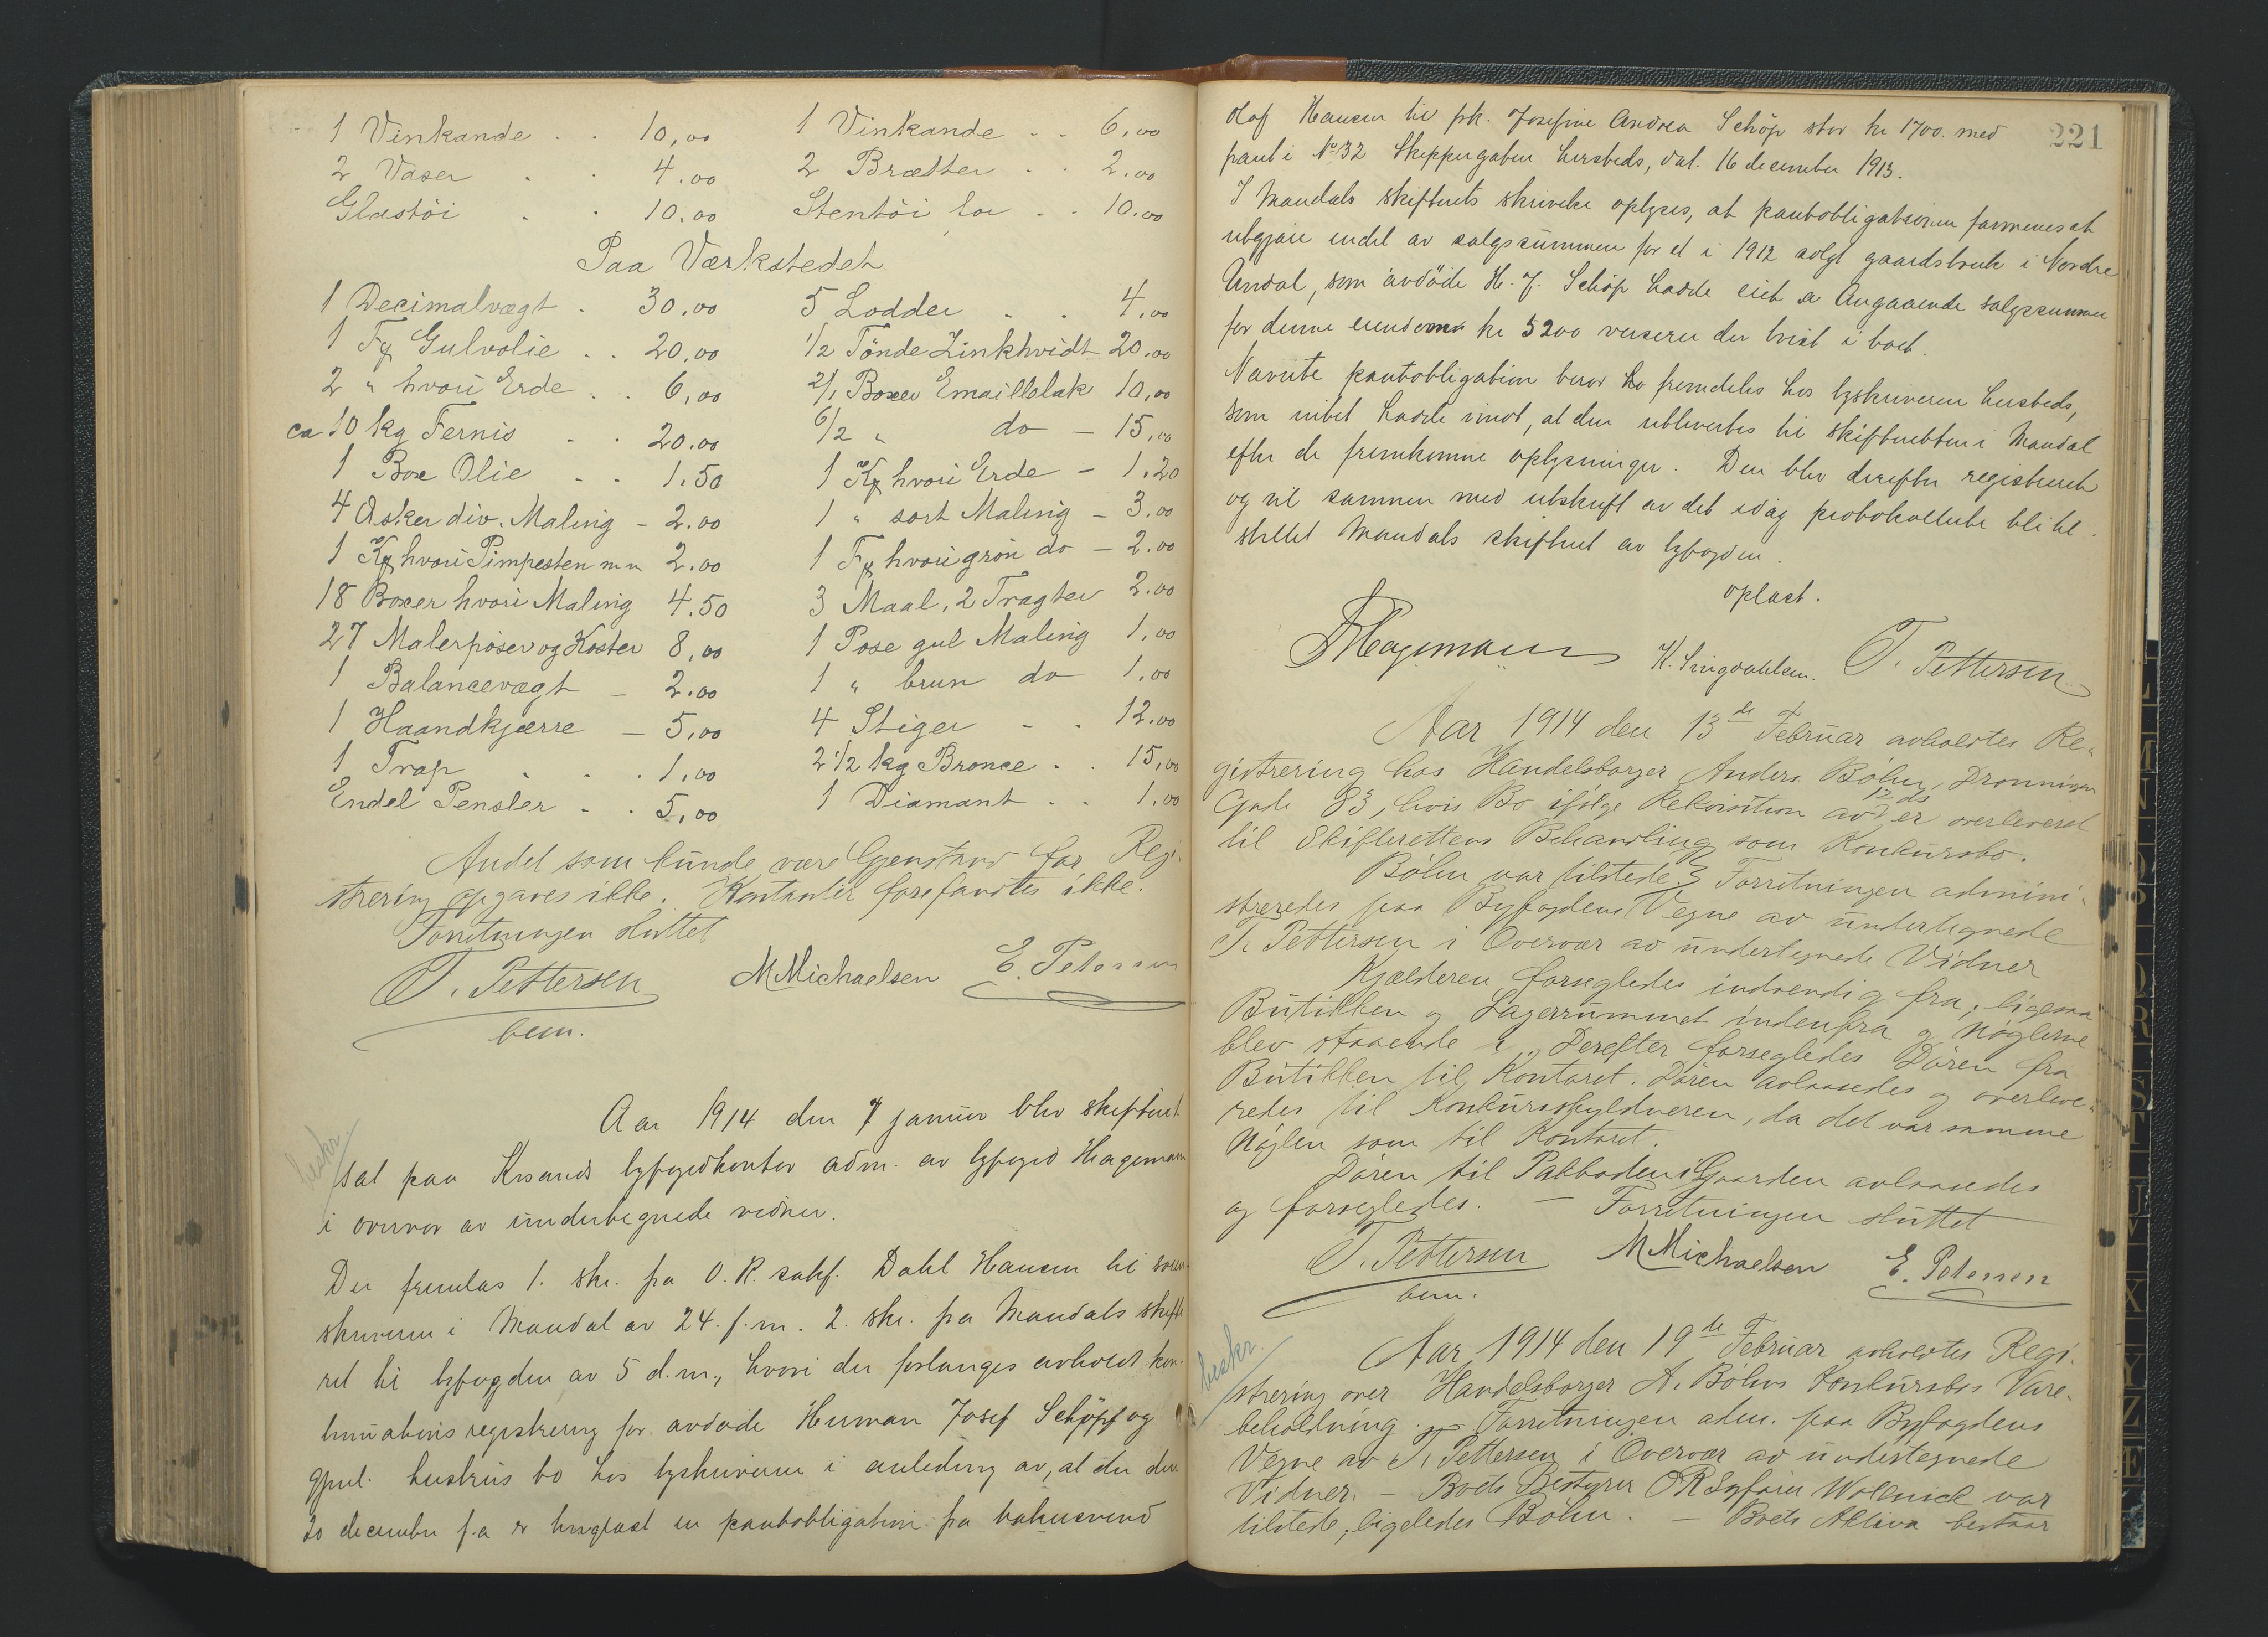 1 Vinkande . . 10,00 1 Vinkande . . 6,00
2 Vaser . . 4.00 2 Brætter . . 2.00
Glastöi . . 10.00 Stentöi for . . 10.00
Paa Værkstedet
1 Decimalvægt . 30,00 5 Lodder . . 4,00
1 Fg Gulvolie . . 20,00 1/2 Tönde Zinkhvidt 20,00
2 " hvori Erde . . 6,00 2/1 Boxer Emaillelak 10,00
ca 10 kg Fernis . . 20.00 6/2 " do — 15,00
1 Box Olie . . 1.50 1 Kg hvori Erde — 1.20
4 Æsker div. Maling — 2.00 1 " sort Maling — 3,00
1 Kg hvori Pimpesten m m 2.00 1 Fg hvori grön do — 2.00
18 Boxer hvori Maling 4.50 3 Maal, 2 Tragter 2.00
27 Malerpöser og Koster 8,00 1 Pose gul Maling 1,00
1 Balancevægt — 2.00 1 " brun do 1,00
1 Haandkjærre — 5,00 4 Stiger . . 12.00
1 Trap . . . 1,00 2 1/2 kg Bronce . . 15,00
Endel Pensler . . 5,00 1 Diamant . . 1,00
Andet som kunde være Gjenstand for Regi-
strering opgaves ikke. Kontanter forefandtes ikke.
Forretningen sluttet
T. Pettersen MMichaelsen E. Petersen
bem.
beskr.
Aar 1914 den 7 januar blev skifteret
sat paa Krsands byfogedkontor adm. av byfoged Hagemann
i overvær av undertegnede vidner.
Der fremlas 1. skr. fra O.R. sakf. Dahl Hansen til soren-
skriveren i Mandal av 24. f.m. 2. skr. fra Mandals skifte
ret til byfogden av 5 d.m., hvori der forlanges avholdt kon-
tinuationsregistrering for avdøde Herman Josef Schöpf og
gjenl. hustrus bo hos byskriveren i anledning av, at der den
20 december f.a er tinglæst en pantobligation fra
221
Olaf Hansen til frk. Josefine Andrea Schöp stor kr 1700. med
pant i No 32 Skippergaten hersteds, dat. 16 december 1913.
I Mandals skifterets skrivelse oplyses, at pantobligationen formenes at
utgjøre endel av salgssummen for et i 1912 solgt gaardsbruk i Nordre
Undal, som avdöde H. J. Schöp hadde eiet a Angaaende salgssummen
for denne eiendom kr 5200 verserer der tvist i boet.
Nævnte pantobligation beror fremdeles hos byskriveren hersteds,
som intet hadde imot, at den utleveres til skifteretten i Mandal
efter de fremkomne oplysninger. Den blev derefter registreret
og vil sammen med utskrift av det idag protokollerte bli til-
stillet Mandals skifteret av byfogden.
oplæst.
Hagemann K. T. Pettersen
Aar 1914 den 13de Februar avholdtes Re-
gistrering hos Handelsborger Anders Böhn, Dronningens
Gade 83, hvis Bo ifølge Rekvisition av 12 ds er overleveret
til Skifterettens Behandling som Konkursbo.
Böhn var tilstede. Forretningen admini-
streredes paa Byfogdens Vegne av undertegnede
T. Pettersen i Overvær av undertegnede Vidner
Kjælderen forsegledes indvendig fra, ligesaa
Butikken og Lagerrummet indenfra og Nøglerne
blev staaende i. Derefter forsegledes Dören fra
Butikken til Kontoret. Dören avlaasedes og overleve-
redes til Konkursskyldneren, da det var samme
Nøglen som til Kontoret.
Dören til Pakboden i Gaarden avlaasedes
og forsegledes. — Forretningen sluttet
T. Pettersen MMichaelsen E. Petersen
bem.
beskr.
Aar 1914 den 19de Februar avholdtes Regi-
strering over Handelsborger A. Böhns Konkursbos Vare-
beholdning. — Forretningen adm. paa Byfogdens
Vegne av T. Pettersen i Overvær av undertegnede
Vidner. — Boets Bestyrer OR Sagfører Wollnick var
tilstede, ligeledes Böhn. — Boets Aktiva bestaar